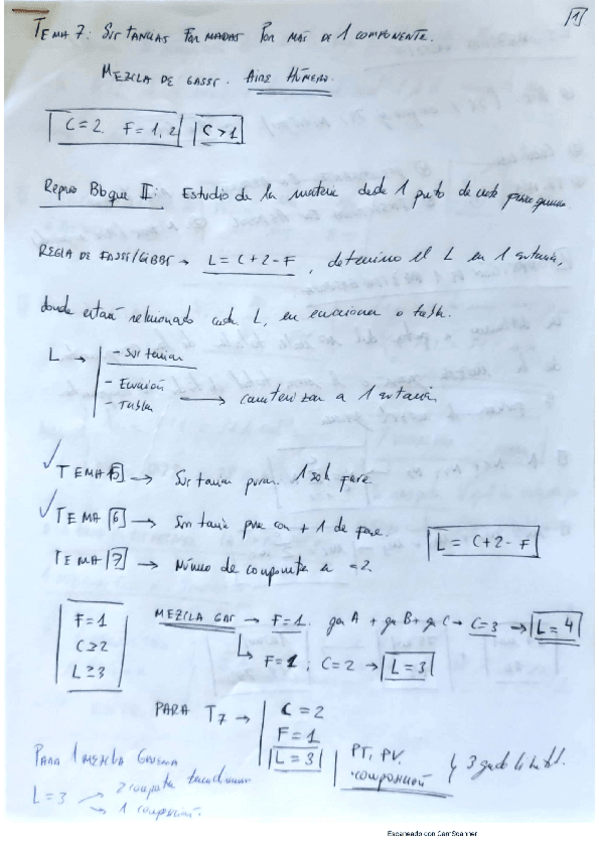 1
TEMA 7: SUSTANCIAS FORMADAS POR MÁS DE 1 COMPONENTE.
MEZCLA DE GASES. AIRE HÚMEDO.
C=2 F=1,2 C>1
Repaso Bloque II: Estudio de la materia desde 1 punto de vista
REGLA DE FASES/GIBBS → L=C+2-F, determino el L en 1 sustancia,
donde estará relacionado cada L, en ecuaciones o tablas.
L → - Sustancias
- Ecuación
- Tablas → caracterizan a 1 sustancia
✓ TEMA 5 → Sustancias puras 1 sola fase.
✓ TEMA 6 → Sustancia pura con + 1 de fase.
L = C+2-F
TEMA 7 → Número de componentes a =2.
F=1
C≥2
L≥3
MEZCLA GAS → F=1. gas A + gas B + gas C → C=3 → L=4
↳ F=1, C=2 → L=3
PARA T7 → C=2
F=1
L=3
PT, PV.
composición
y 3 grados libertad.
PARA 1 MEZCLA GASEOSA
L=3 → 2
→ 1 composición.
Escaneado con CamScanner